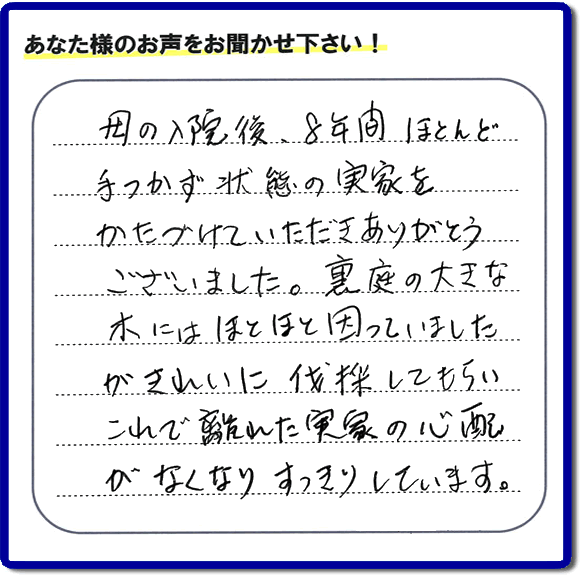 あなた様のお声をお聞かせ下さい！
母の入院後、8年間 ほとんど
手つかず状態の実家を
かたづけていただきありがとう
ございました。裏庭の大きな
木にはほとほと困っていました
がきれいに伐採してもらい
これで離れた実家の心配
がなくなりすっきりしています。